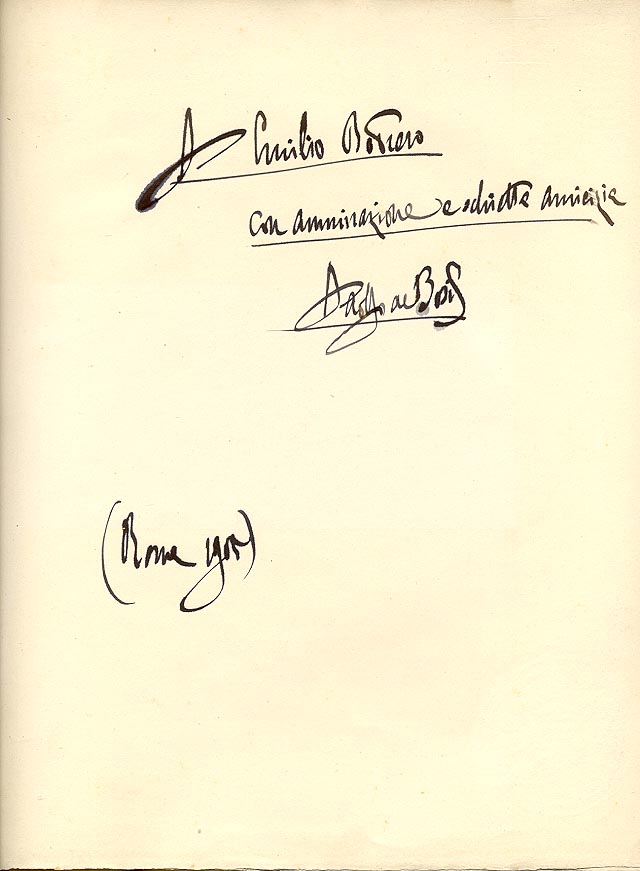 A Emilio Bodrero
con ammirazione e schietta amicizia
Adolfo de Bosis
(Roma 1905)